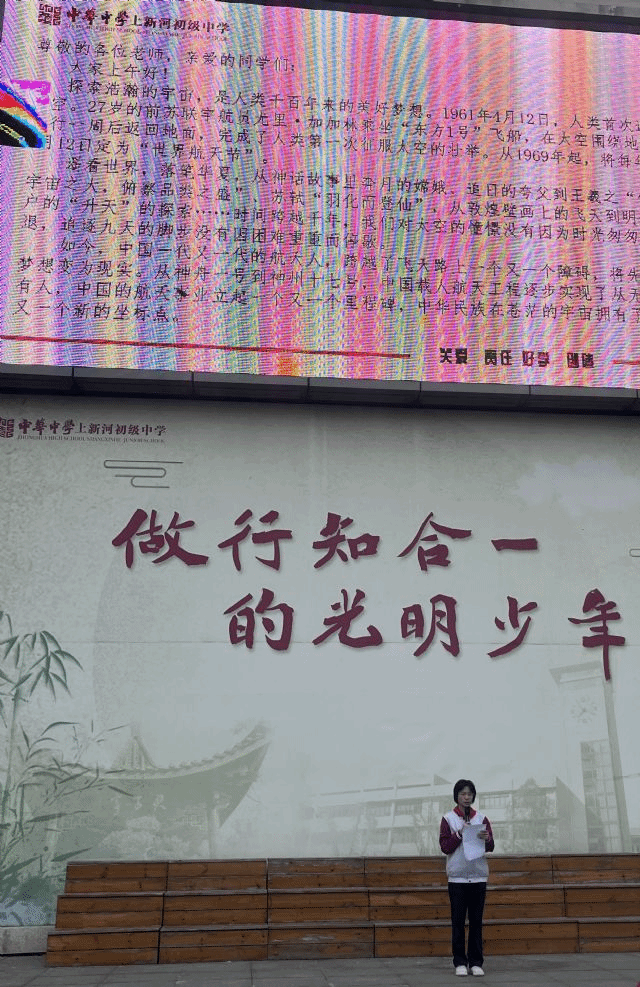 中華中學上新河初级中学
尊敬的各位老师，亲爱的同学们：
大家上午好！
探索浩瀚的宇宙，是人类千百年来的美好梦想。1961年4月12日，人类首次
27岁的前苏联宇航员尤里·加加林乘坐“东方1号”飞船，在太空围绕地
行一周后返回地面，完成了人类第一次征服太空的壮举。从1969年起，将每年
12日定为“世界航天节”。
从神话故事里奔月的嫦娥、追日的夸父到王羲之“
宇宙之大，俯察品类之盛”，苏轼“羽化而登仙”，从敦煌壁画上的飞天到明
户的“升天”的探索……时间跨越千年，我们对太空的憧憬没有因为时光匆匆
退，追逐九天的脚步没有因困难重重而停歇。
如今，中国一代又一代的航天人，跨越了飞天路上一个又一个障碍，将先
梦想变为现实。从神舟一号到神州十七号，中国载人航天工程逐步实现了从无
有人，中国的航天事业立起一个又一个里程碑，中华民族在苍茫的宇宙拥有了
又一个新的坐标点。
关爱 责任 好学 创造
中華中學上新河初级中学
ZHONGHUA HIGH SCHOOL SHANGXINHE JUNIOR SCHOOL
做行知合一
的光明少年